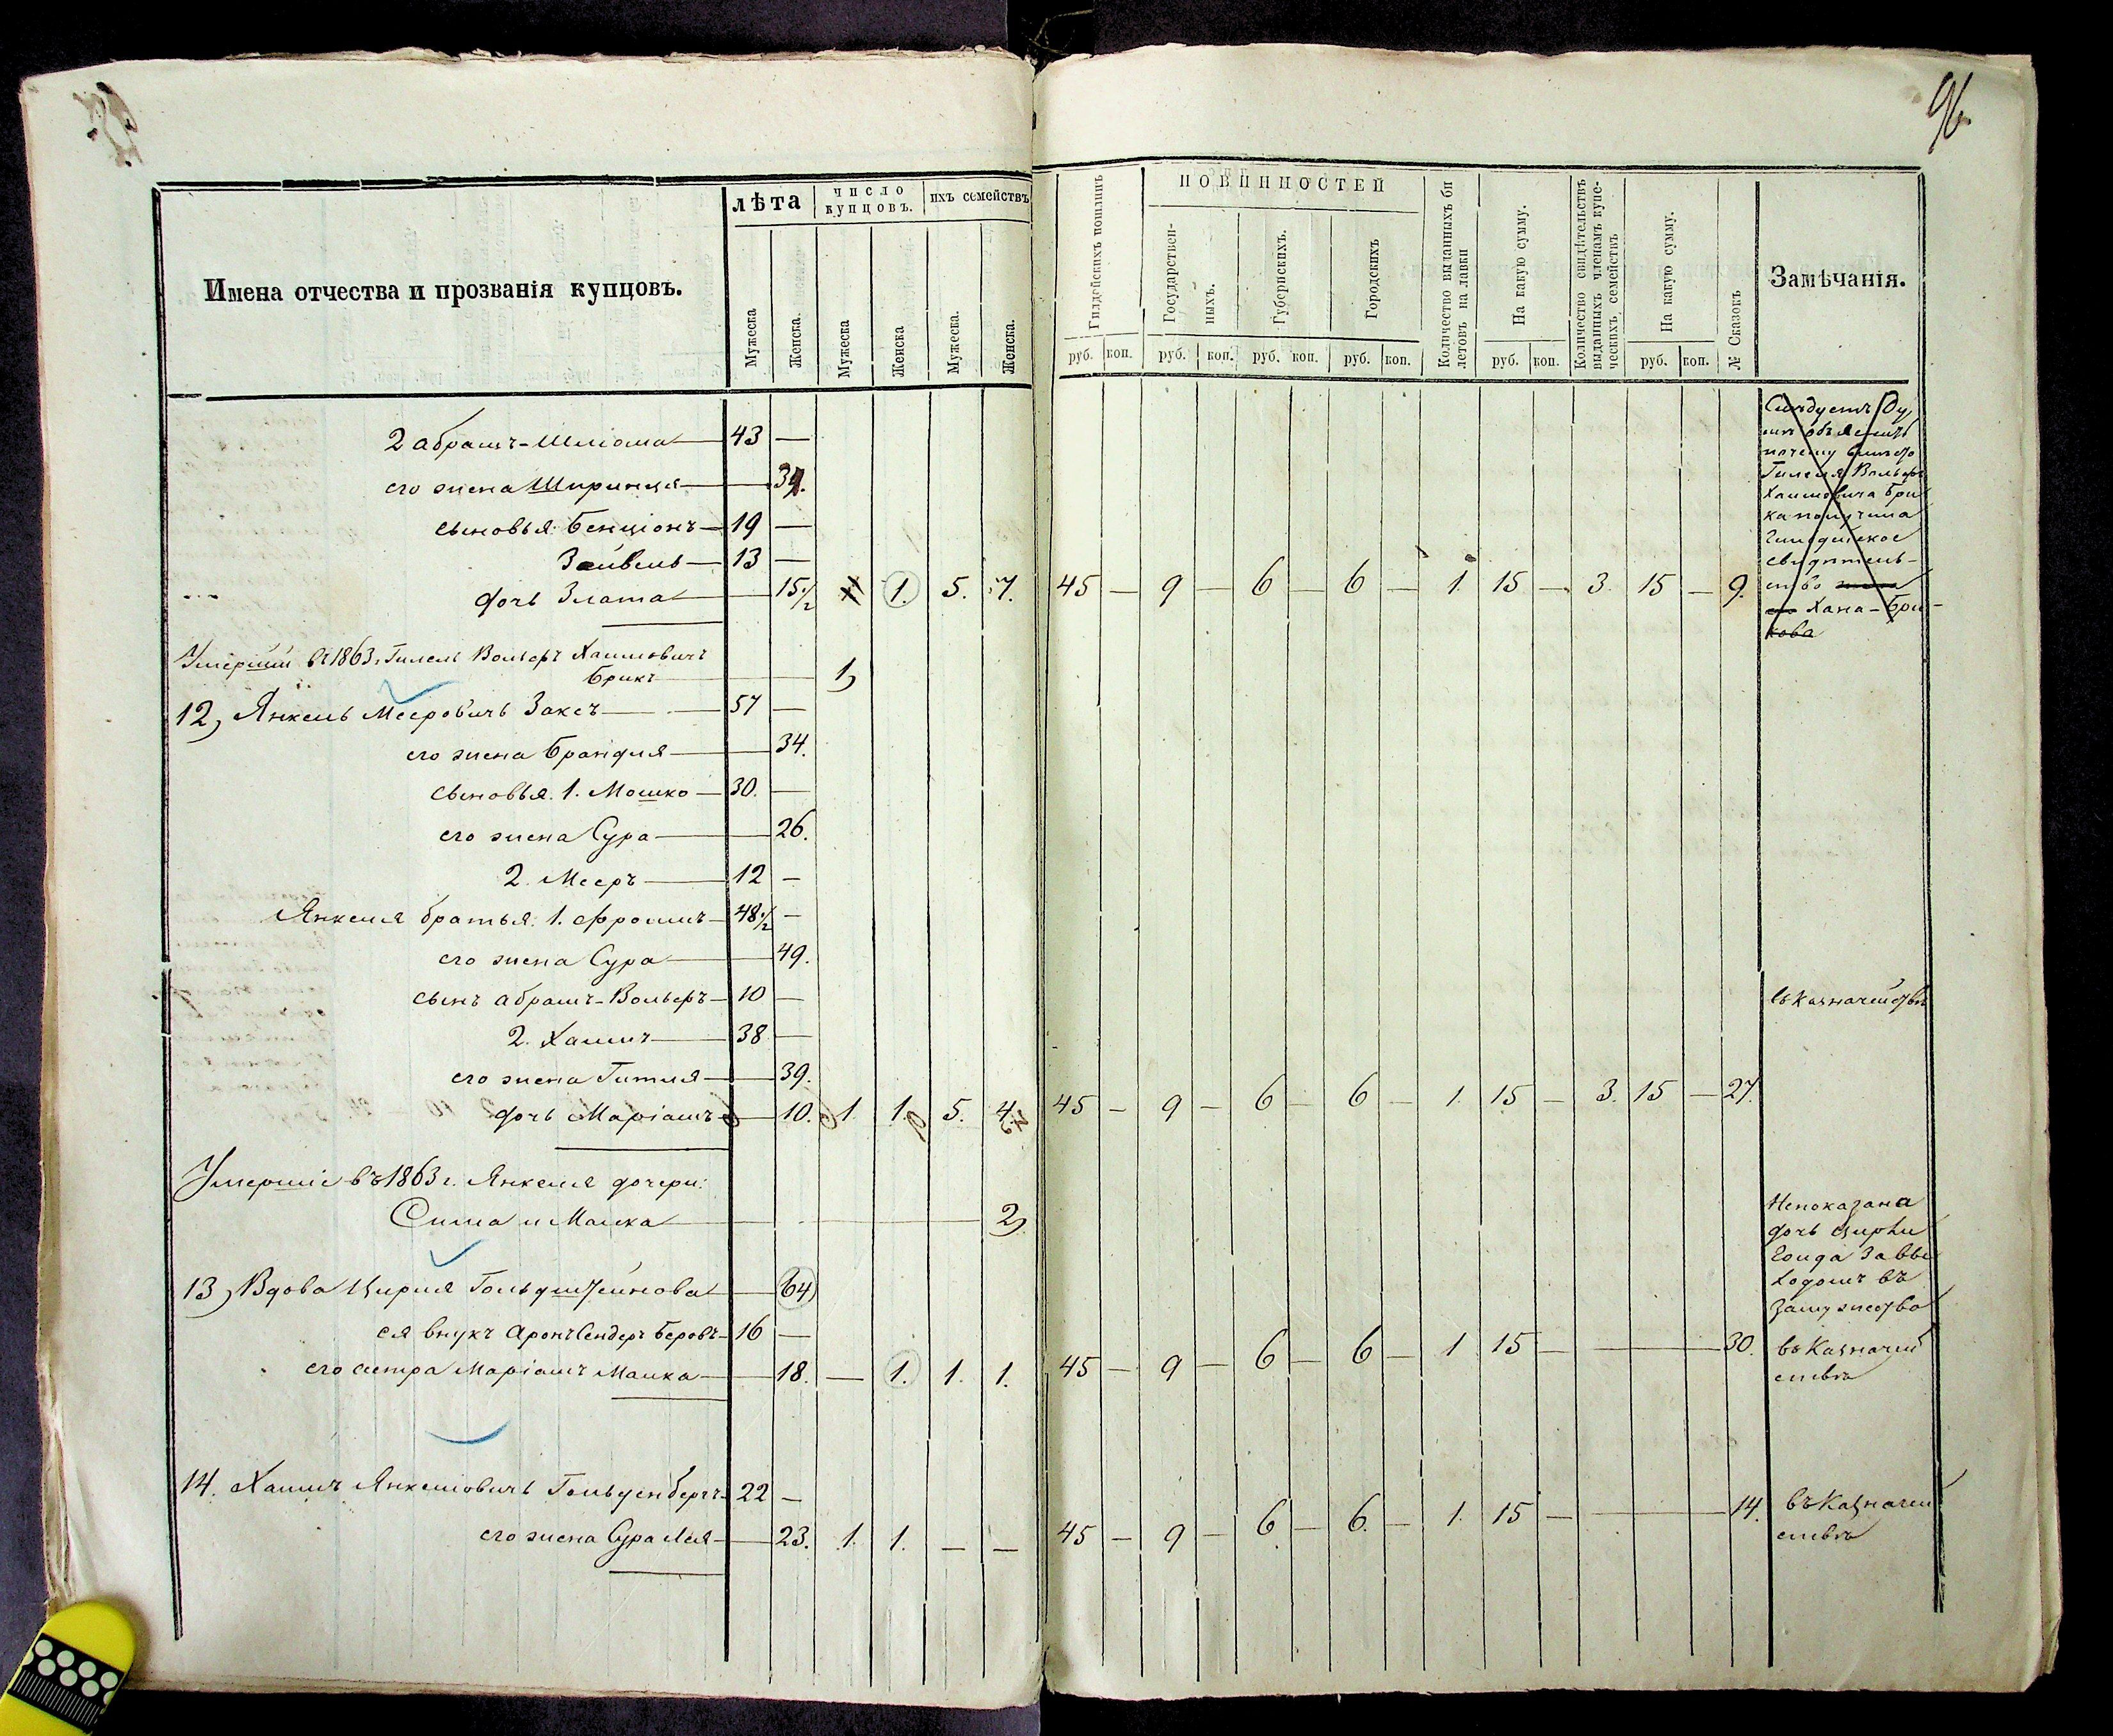 96
Имена отчества и прозванія купцовъ.
лѣта
число купцовъ.
ихъ семействъ
Мужеска
Женска.
Мужеска
Женска
Мужеска.
Женска.
Гилдейскихъ пошлинъ
ПОВИННОСТЕЙ
Государствен-
ныхъ.
Губернскихъ.
Городскихъ
Количество выданныхъ би
летовъ на лавки
На какую сумму.
Количество свидѣтельствъ
выданныхъ членамъ купе-
ческихъ семействъ
На какую сумму.
№ Сказокъ
Замѣчанія.
руб. коп. руб. коп. руб. коп. руб. коп. руб. коп. руб. коп.
2 Абрамъ-Шліома 43 —
его жена Шпринця — 34.
сыновья: Бенціонъ 19 —
Зейвель 13 —
дочь Злата — 15 1/2 1 1. 5. 7. 45 — 9 — 6 — 6 — 1. 15 — 3. 15 — 9.
Слѣдуетъ Ду
мѣ объяснить
почему вмѣсто
Гилеля Вольфъ
Хаимовича Бри
ка получила
Гилдейское
свидѣтель-
ство
Хана-Бри-
кова
Умершій въ 1863 г. Гилель Вольфъ Хаимовичъ
Брикъ — — 1,
12, Янкель Мееровичъ Заксъ 57 —
его жена Брандля — 34.
сыновья. 1. Мошко 30. —
его жена Сура — 26.
2. Мееръ 12 —
Янкеля братья: 1. Фроимъ 48 1/2 —
его жена Сура — 49.
сынъ Абрамъ-Вольфъ 10 —
въ Казначействѣ
2. Хаимъ 38 —
его жена Гитля — 39.
дочь Маріамъ — 10. 1. 1. 5. 4. 45 — 9 — 6 — 6 — 1. 15 — 3. 15 — 27.
Умершіе въ 1863 г. Янкеля дочери:
Сима и Малка — 2,
Непоказана
дочь Цирли
Гоида за вы
ходомъ въ
замужество
13, Вдова Цирля Гольдштейнова — 64
ея внукъ Аронъ Сендеръ Беровъ 16 —
его сестра Маріамъ Малка — 18. — 1. 1. 1. 45 — 9 — 6 — 6 — 1 15 — — 30.
въ Казначей
ствѣ
14. Хаимъ Янкеліовичъ Гольденбергъ 22 —
его жена Сура Лея — 23. 1. 1. — — 45 — 9 — 6 — 6. — 1. 15 — — 14.
въ Казначей
ствѣ